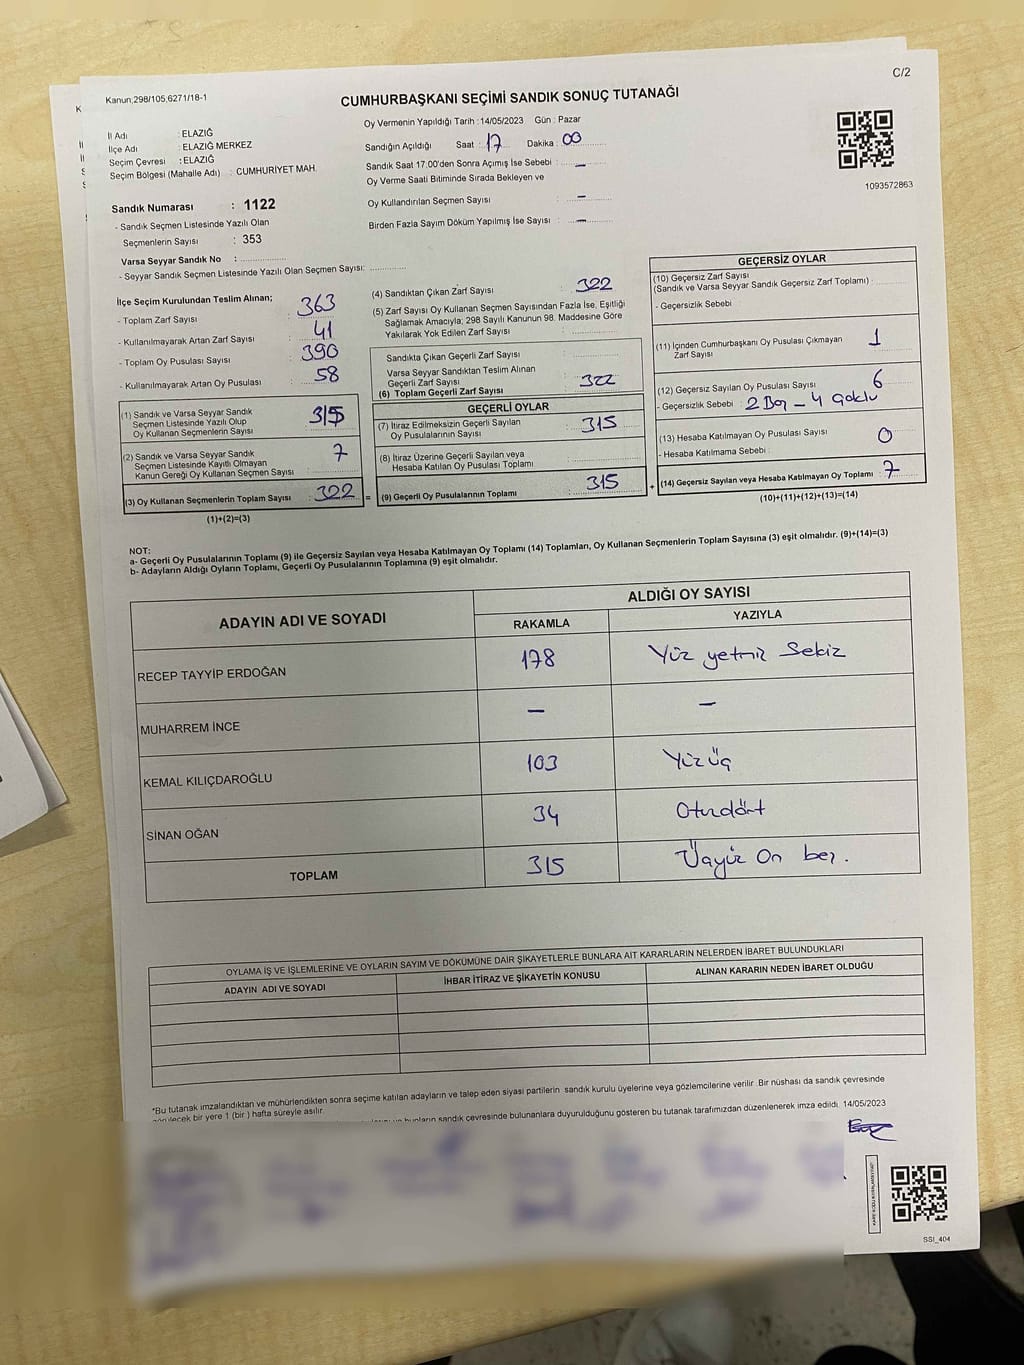 C/2
Kanun,298/105,6271/18-1
CUMHURBAŞKANI SEÇİMİ SANDIK SONUÇ TUTANAĞI
İl Adı : ELAZIĞ
İlçe Adı : ELAZIĞ MERKEZ
Seçim Çevresi : ELAZIĞ
Seçim Bölgesi (Mahalle Adı) : CUMHURİYET MAH.
Oy Vermenin Yapıldığı Tarih :14/05/2023 Gün : Pazar
Sandığın Açıldığı Saat : 17 Dakika : 00
Sandık Saat 17.00'den Sonra Açımış İse Sebebi : –
Oy Verme Saati Bitiminde Sırada Bekleyen ve
Oy Kullandırılan Seçmen Sayısı : –
Birden Fazla Sayım Döküm Yapılmış İse Sayısı : –
1093572863
Sandık Numarası : 1122
- Sandık Seçmen Listesinde Yazılı Olan
Seçmenlerin Sayısı : 353
Varsa Seyyar Sandık No :
- Seyyar Sandık Seçmen Listesinde Yazılı Olan Seçmen Sayısı:
İlçe Seçim Kurulundan Teslim Alınan;
- Toplam Zarf Sayısı : 363
- Kullanılmayarak Artan Zarf Sayısı : 41
- Toplam Oy Pusulası Sayısı : 390
- Kullanılmayarak Artan Oy Pusulası : 58
(1) Sandık ve Varsa Seyyar Sandık
Seçmen Listesinde Yazılı Olup
Oy Kullanan Seçmenlerin Sayısı : 315
(2) Sandık ve Varsa Seyyar Sandık
Seçmen Listesinde Kayıtlı Olmayan
Kanun Gereği Oy Kullanan Seçmen Sayısı : 7
(3) Oy Kullanan Seçmenlerin Toplam Sayısı : 322 =
(1)+(2)=(3)
(4) Sandıktan Çıkan Zarf Sayısı : 322
(5) Zarf Sayısı Oy Kullanan Seçmen Sayısından Fazla İse, Eşitliği
Sağlamak Amacıyla; 298 Sayılı Kanunun 98. Maddesine Göre
Yakılarak Yok Edilen Zarf Sayısı :
Sandıkta Çıkan Geçerli Zarf Sayısı :
Varsa Seyyar Sandıktan Teslim Alınan
Geçerli Zarf Sayısı :
(6) Toplam Geçerli Zarf Sayısı : 322
GEÇERLİ OYLAR
(7) İtiraz Edilmeksizin Geçerli Sayılan
Oy Pusulalarının Sayısı : 315
(8) İtiraz Üzerine Geçerli Sayılan veya
Hesaba Katılan Oy Pusulası Toplamı :
(9) Geçerli Oy Pusulalarının Toplamı : 315 +
GEÇERSİZ OYLAR
(10) Geçersiz Zarf Sayısı
(Sandık ve Varsa Seyyar Sandık Geçersiz Zarf Toplamı) :
- Geçersizlik Sebebi :
(11) İçinden Cumhurbaşkanı Oy Pusulası Çıkmayan
Zarf Sayısı : 1
(12) Geçersiz Sayılan Oy Pusulası Sayısı : 6
- Geçersizlik Sebebi : 2 Boş – 4 Çoklu
(13) Hesaba Katılmayan Oy Pusulası Sayısı : 0
- Hesaba Katılmama Sebebi :
(14) Geçersiz Sayılan veya Hesaba Katılmayan Oy Toplamı : 7
(10)+(11)+(12)+(13)=(14)
NOT:
a- Geçerli Oy Pusulalarının Toplamı (9) ile Geçersiz Sayılan veya Hesaba Katılmayan Oy Toplamı (14) Toplamları, Oy Kullanan Seçmenlerin Toplam Sayısına (3) eşit olmalıdır. (9)+(14)=(3)
b- Adayların Aldığı Oyların Toplamı, Geçerli Oy Pusulalarının Toplamına (9) eşit olmalıdır.
ADAYIN ADI VE SOYADI
ALDIĞI OY SAYISI
RAKAMLA YAZIYLA
RECEP TAYYİP ERDOĞAN 178 Yüz yetmiş Sekiz
MUHARREM İNCE – –
KEMAL KILIÇDAROĞLU 103 Yüz üç
SİNAN OĞAN 34 Otuzdört
TOPLAM 315 Üçyüz On beş.
OYLAMA İŞ VE İŞLEMLERİNE VE OYLARIN SAYIM VE DÖKÜMÜNE DAİR ŞİKAYETLERLE BUNLARA AİT KARARLARIN NELERDEN İBARET BULUNDUKLARI
ADAYIN ADI VE SOYADI İHBAR İTİRAZ VE ŞİKAYETİN KONUSU ALINAN KARARIN NEDEN İBARET OLDUĞU
*Bu tutanak imzalandıktan ve mühürlendikten sonra seçime katılan adayların ve talep eden siyasi partilerin sandık kurulu üyelerine veya gözlemcilerine verilir. Bir nüshası da sandık çevresinde
görülecek bir yere 1 (bir ) hafta süreyle asılır.
bunların sandık çevresinde bulunanlara duyurulduğunu gösteren bu tutanak tarafımızdan düzenlenerek imza edildi. 14/05/2023
SSI_404